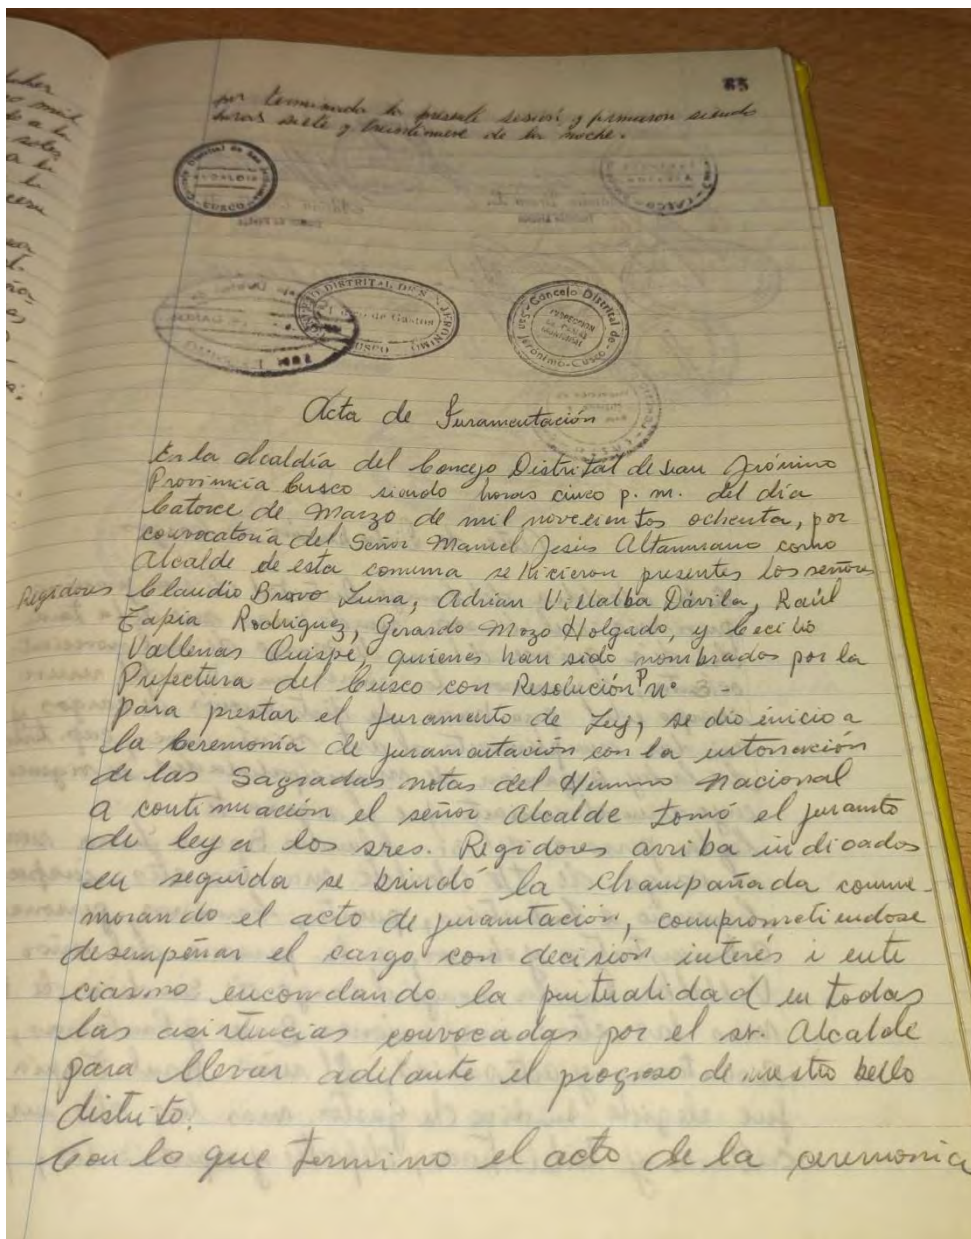 65
por terminado la presente sesión y firmaron siendo
horas siete y treintinueve de la noche.
Concejo Distrital de San Jerónimo
ALCALDIA
CUSCO
CONCEJO DISTRITAL DE S. JERONIMO
de Gastos
CUSCO
Concejo Distrital de San Jeronimo-Cusco
INSPECCION
Acta de Juramentación
En la alcaldía del Concejo Distrital de San Jerónimo
Provincia Cusco siendo horas cinco p. m. del día
Catorce de Marzo de mil novecientos ochenta, por
convocatoria del Señor Manuel Jesús Altamirano como
Alcalde de esta comuna se hicieron presentes los señores
Regidores Claudio Bravo Luna, Adrian Villalba Dávila, Raúl
Tapia Rodriguez, Gerardo Mozo Holgado, y Cecilio
Vallenas Quispe, quienes han sido nombrados por la
Prefectura del Cusco con Resolución P nº -
para prestar el juramento de Ley, se dio éinicio a
la Ceremonia de juramentación con la entonación
de las Sagradas notas del Himno Nacional
a continuación el señor Alcalde tomó el juramto
de ley a los sres. Regidores arriba indicados
en seguida se brindó la Champañada conme-
morando el acto de juramtación, comprometiendose
desempeñar el cargo con decisión interés i ente
ciasmo encomdando la puntualidad en todas
las asistencias convocadas por el sr. Alcalde
para llevar adelante el progreso de nuestro bello
distrito.
Con lo que termino el acto de la ceremonia